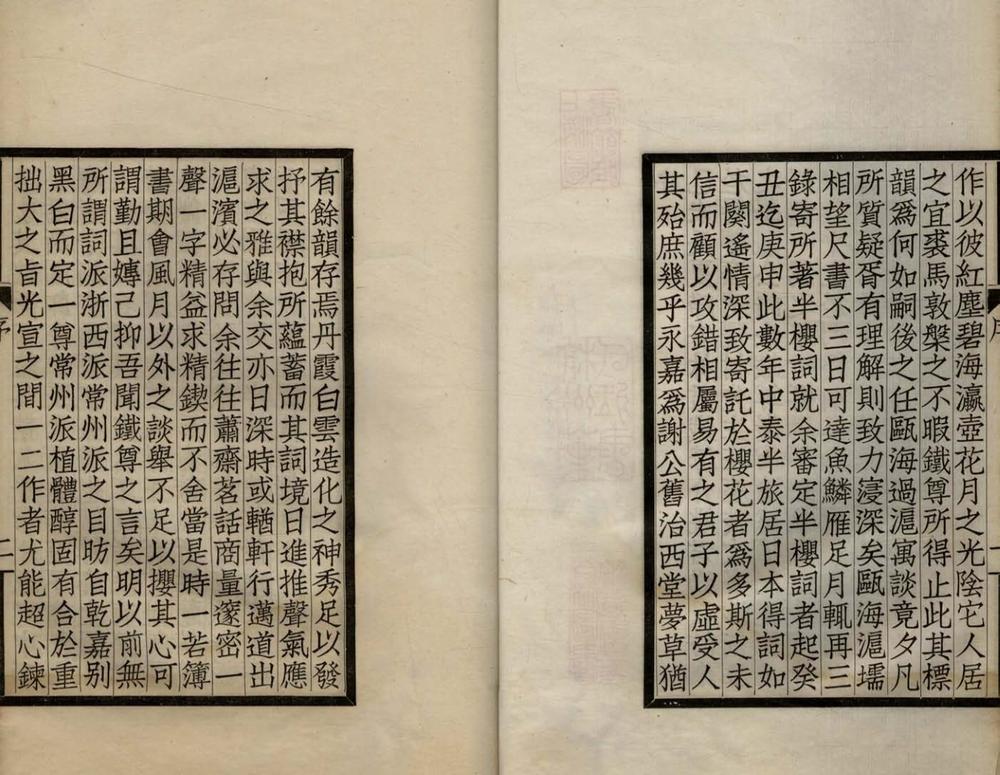 作以彼紅塵碧海瀛壺花月之光陰它人居
之宜裘馬敦槃之不暇鐵尊所得止此其標
韻爲何如嗣後之任甌海過滬寓談竟夕凡
所質疑胥有理解則致力寖深矣甌海滬壖
相望尺書不三日可達魚鱗雁足月輒再三
錄寄所著半櫻詞就余審定半櫻詞者起癸
丑迄庚申此數年中泰半旅居日本得詞如
干闋遙情深致寄託於櫻花者爲多斯之未
信而顧以攻錯相屬易有之君子以虛受人
其殆庶幾乎永嘉爲謝公舊治西堂夢草猶
有餘韻存焉丹霞白雲造化之神秀足以發
抒其襟抱所蘊蓄而其詞境日進推聲氣應
求之雅與余交亦日深時或輶軒行邁道出
滬濱必存問余往往蕭齋茗話商量邃密一
聲一字精益求精鍥而不舍當是時一若簿
書期會風月以外之談舉不足以攖其心可
謂勤且嫥已抑吾聞鐵尊之言矣明以前無
所謂詞派浙西派常州派之目昉自乾嘉别
黑白而定一尊常州派植體醇固有合於重
拙大之恉光宣之間一二作者尤能超心鍊
序
二